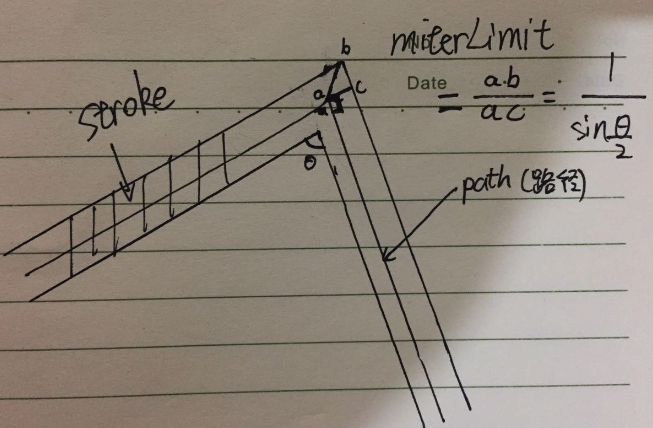 miterLimit
Date = ab/ac = 1/sin θ/2
b
a c
stroke
θ
path (路径)